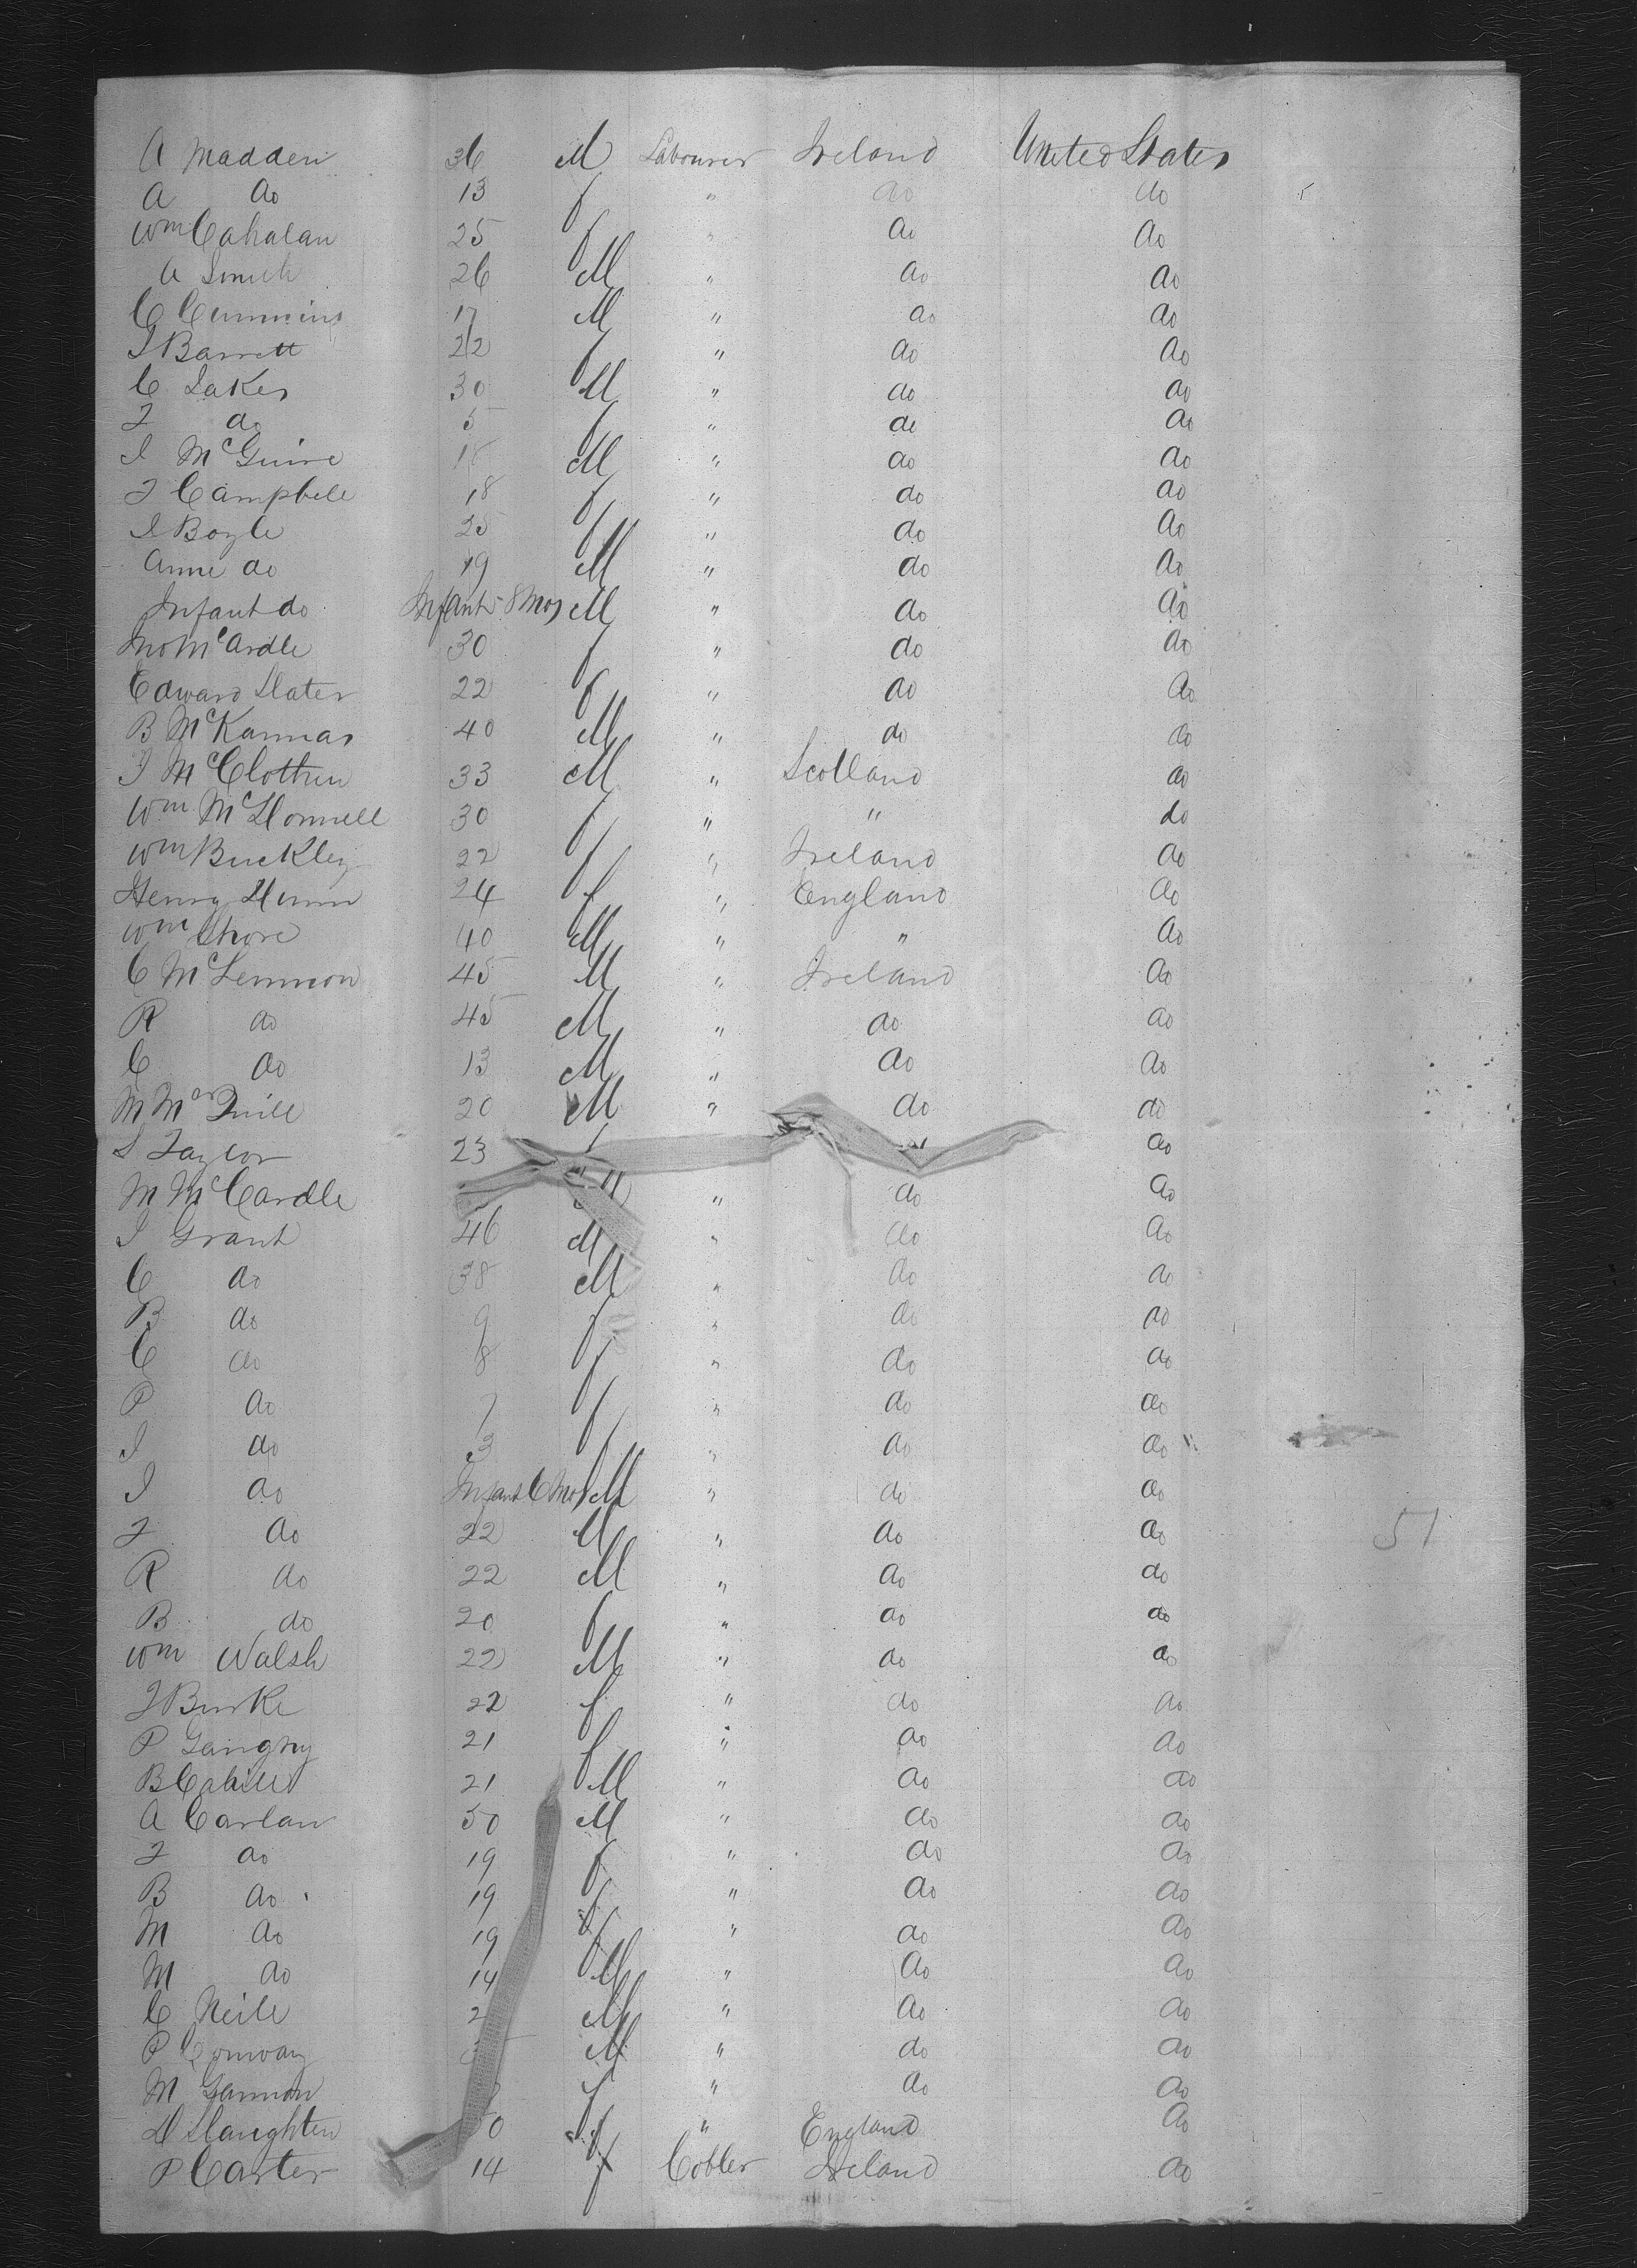 A Madden 36 M Labourer Ireland United States
A do 13 f " do do
Wm Cahalan 25 f " do do
A Smith 26 M " do do
C Cummins 17 M " do do
J Barrett 22 f " do do
C Lakes 30 M " do do
J do 5 f " do do
J McGuire M " do do
J Campbell 18 f " do do
J Boyle 25 f " do do
Anne do 19 M " do do
Infant do Infant 8 Mos M " do do
Jno McArdle 30 f " do do
Edward Slater 22 f " do do
B McKannas 40 M " do do
J McClothen 33 M " Scotland do
Wm McDonnell 30 f " " do
Wm Buckley 22 f " Ireland do
Henry Dunn 24 f " England do
Wm Shore 40 M " " do
C McLennon 45 M " Ireland do
R do 45 M " do do
C do 13 M " do do
M 20 M " do do
S Taylor 23 f do
M McCardle M " do do
J Grant 46 M " do do
C do 38 M " do do
B do 9 f " do do
C do 8 f " do do
P do 7 f " do do
J do 3 f " do do
J do Infant 6 Mos M " do do
J do 22 M " do do 51
R do 22 M " do do
B do 20 f " do do
Wm Walsh 22 M " do do
J Burke 22 f " do do
P 21 f " do do
B Cahill 21 M " do do
A Carlan 50 M " do do
J do 19 f " do do
B do 19 f " do do
M do 19 f " do do
M do 14 M " do do
C Neile 2 M " do do
P Conway M " do do
M Gannon f " do do
D Slaughten 0 f " England do
P Carter 14 f Cobler Ireland do